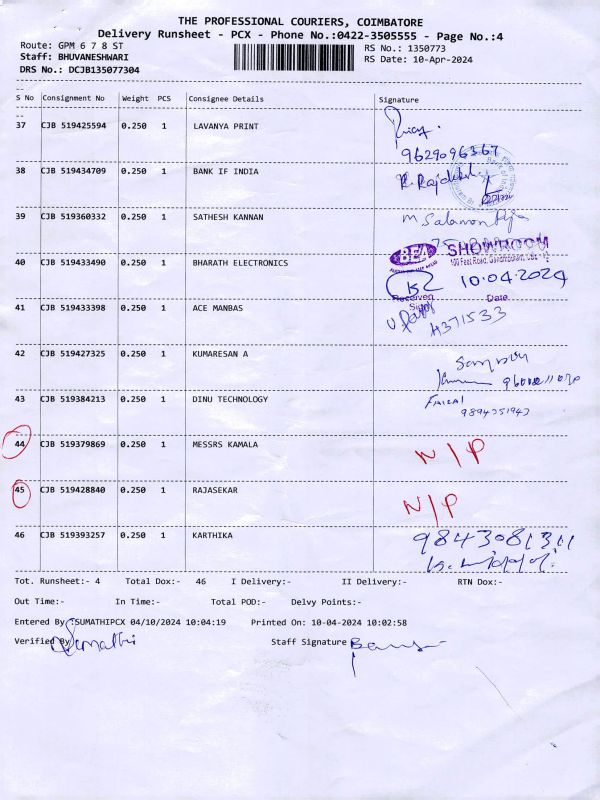 THE PROFESSIONAL COURIERS, COIMBATORE
Delivery Runsheet - PCX - Phone No.:0422-3505555 - Page No.:4
Route: GPM 6 7 8 ST
RS No.: 1350773
Staff: BHUVANESHWARI
RS Date: 10-Apr-2024
DRS No.: DCJB135077304
S No Consignment No Weight PCS Consignee Details Signature
37 CJB 519425594 0.250 1 LAVANYA PRINT
9629096367
38 CJB 519434709 0.250 1 BANK IF INDIA
39 CJB 519360332 0.250 1 SATHESH KANNAN
M. Salamon Raja
BEA SHOWROOM
40 CJB 519433490 0.250 1 BHARATH ELECTRONICS
10.04.2024
Received Date
Sign
41 CJB 519433398 0.250 1 ACE MANBAS
42 CJB 519427325 0.250 1 KUMARESAN A
43 CJB 519384213 0.250 1 DINU TECHNOLOGY FAIZAL
9894351943
44 CJB 519379869 0.250 1 MESSRS KAMALA N/P
45 CJB 519428840 0.250 1 RAJASEKAR N/P
46 CJB 519393257 0.250 1 KARTHIKA
Tot. Runsheet:- 4 Total Dox:- 46 I Delivery:- II Delivery:- RTN Dox:-
Out Time:- In Time:- Total POD:- Delvy Points:-
Entered By:SUMATHIPCX 04/10/2024 10:04:19 Printed On: 10-04-2024 10:02:58
Verified By Sumathi Staff Signature